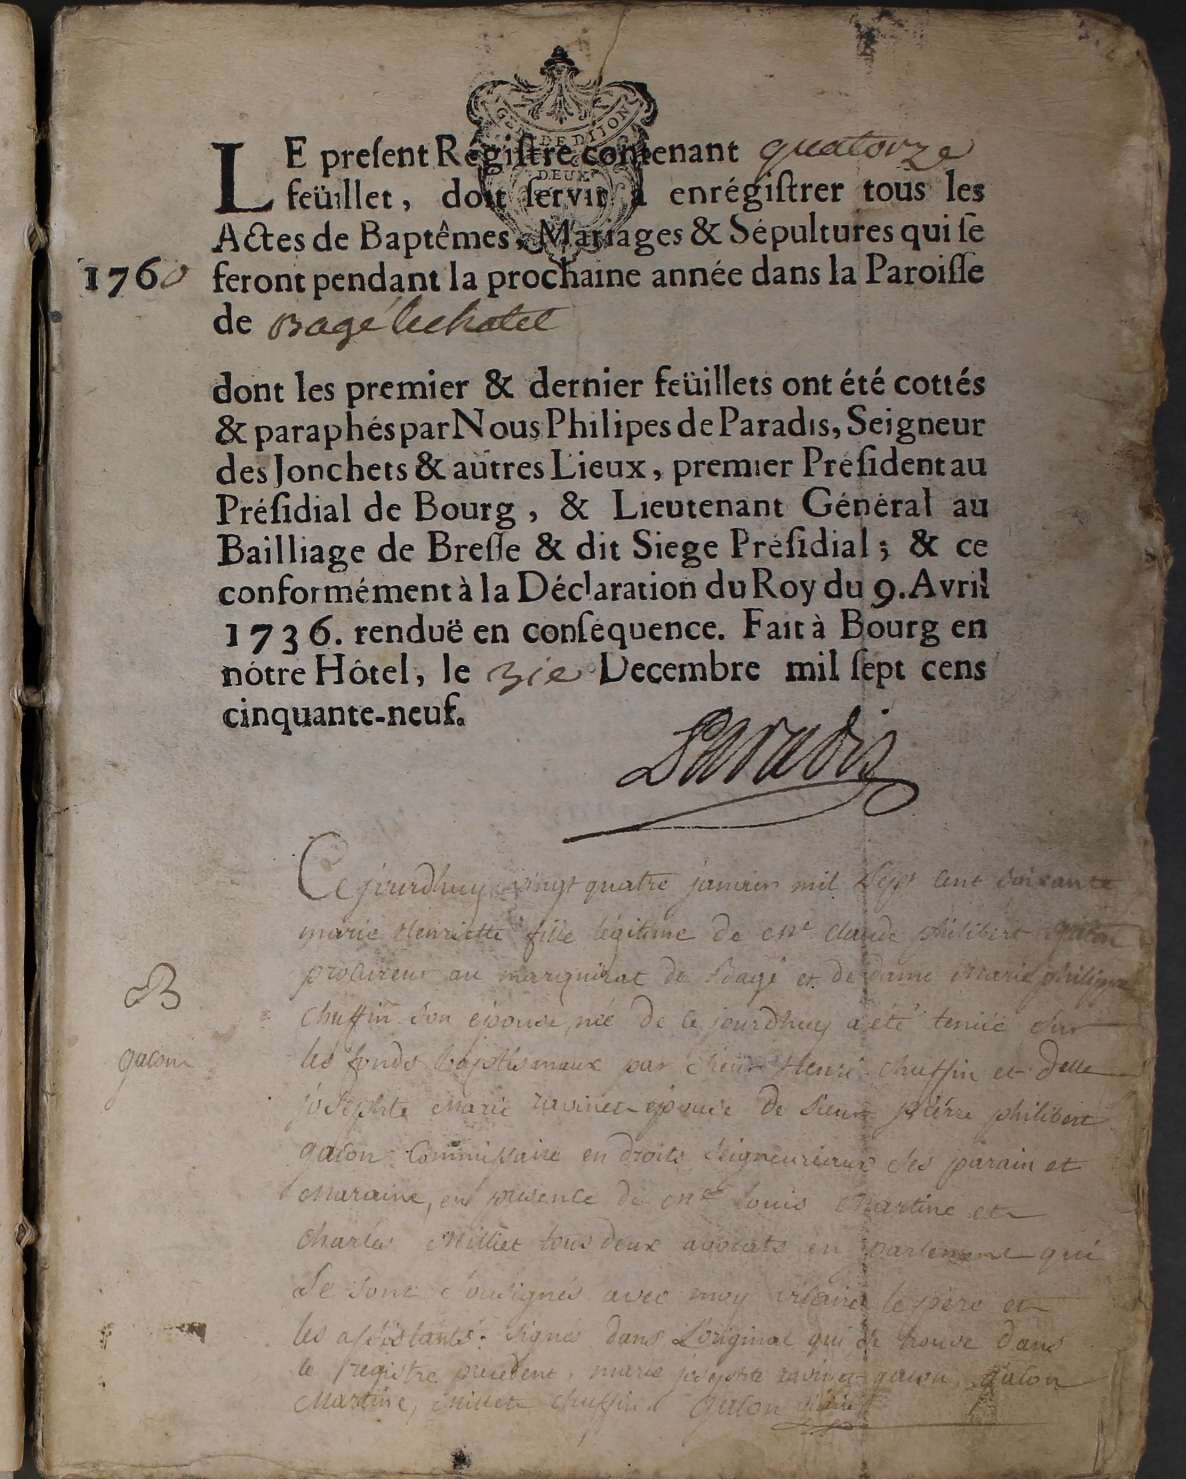 GEN DE DIJON
DEUX
LE preſent Regiſtre contenant quatorze
feüillet, doit ſervir à enrégiſtrer tous les
Actes de Baptêmes, Mariages & Sépultures qui ſe
1760 feront pendant la prochaine année dans la Paroiſſe
de Bagé le chatel
dont les premier & dernier feüillets ont été cottés
& paraphés par Nous Philipes de Paradis, Seigneur
des Jonchets & autres Lieux, premier Préſident au
Préſidial de Bourg, & Lieutenant Général au
Bailliage de Breſſe & dit Siege Préſidial; & ce
conformément à la Déclaration du Roy du 9. Avril
1736. renduë en conſéquence. Fait à Bourg en
nôtre Hôtel, le Decembre mil ſept cens
cinquante-neuf.
Paradis
Ce jourdhuy vingt quatre janvier mil sept cent soixante
marie henriette fille légitime de me claude philibert gacon
procureur au marquisat de Bagé et de dame marie philippe
B
chuffin son épouse, née de ce jourdhuy a été tenüe sur
gacon
les fonds baptismaux par sieur henri chuffin et delle
josephte marie ravinet epouse de sieur pierre philibert
gacon commissaire en droits seigneuriaux ses parain et
maraine, en presence de me louis martine et
charles milliet tous deux avocats en parlement qui
se sont sousignés avec moy vicaire le père et
les assistants. signés dans l'original qui se trouve dans
le registre precedent, marie josephte ravinet gacon, gacon
martine, milliet chuffin gacon vicaire